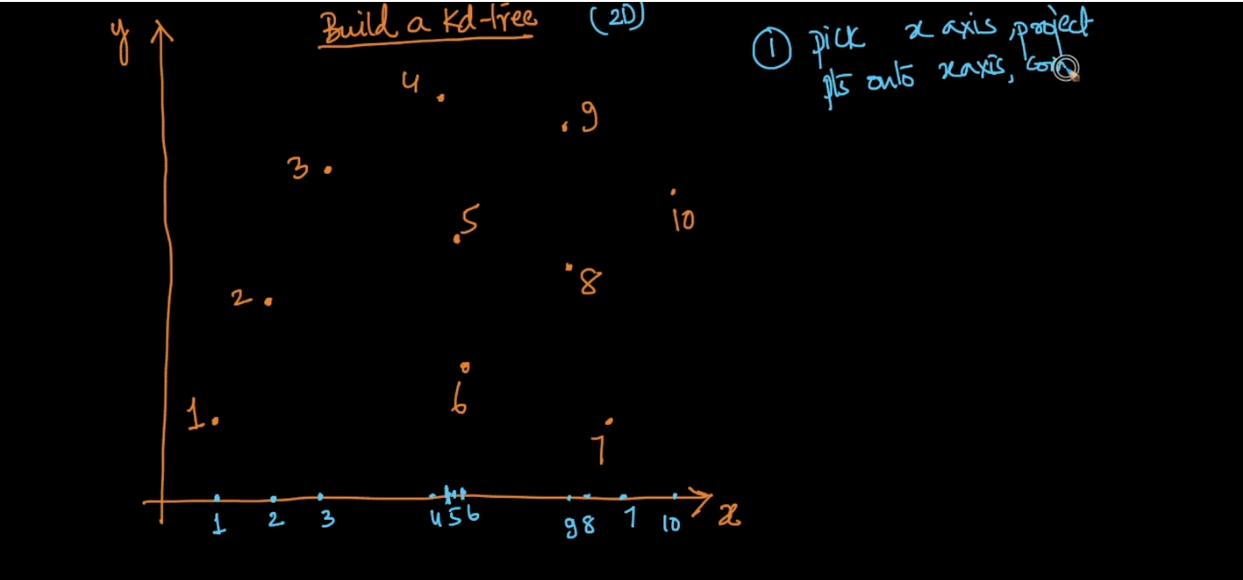 Build a Kd-tree (2D)
① pick x axis, project
pts onto x axis, com
y
4
9
3
5
10
8
2
6
1
7
1 2 3 4 5 6 9 8 7 10
x